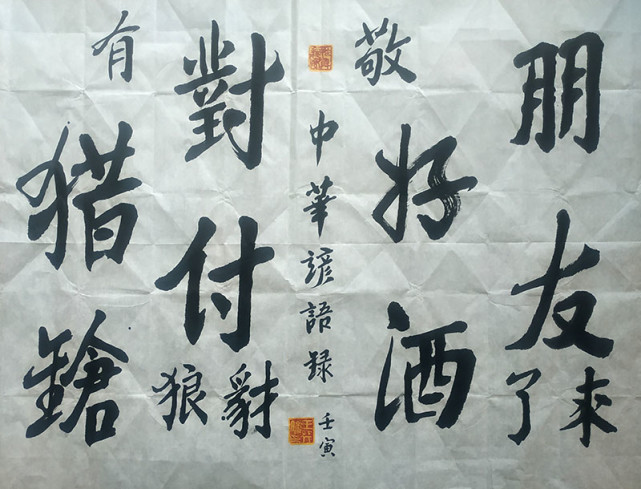 朋友來了
敬好酒
中華諺語録 壬寅
對付豺狼
有猎鎗